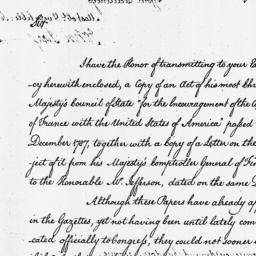 Sir
I have the Honor of transmitting to your E
cy herewith enclosed, a Copy of an Act of his most Chr
Majesty's Council of State "for the Encouragement of the
of France with the United States of America" passed
December 1787, together with a Copy of a Letter on the
ject of it from his Majesty's Comptroller General of Fi
to the Honorable Mr. Jefferson, dated on the same D
Although these Papers have already ap
in the Gazettes, yet not having been until lately com
cated officially to Congress, they could not sooner